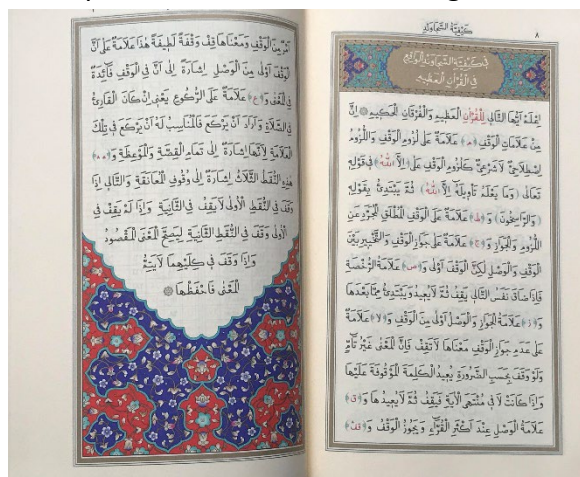 كَيْفِيَّةُ السَّجَاوَنْدِ
٨
فِي كَيْفِيَّةِ السَّجَاوَنْدِ الْوَاقِعِ
فِي الْقُرْآنِ الْعَظِيمِ
اِعْلَمْ اَيُّهَا التَّالِي لِلْقُرْآنِ الْعَظِيمِ وَالْفُرْقَانِ الْحَكِيمِ اِنَّ
مِنْ عَلَامَاتِ الْوَقْفِ ﴿م﴾ عَلَامَةٌ عَلَى لُزُومِ الْوَقْفِ وَاللُّزُومُ
اِصْطِلَاحِيٌّ لَا شَرْعِيٌّ كَلُزُومِ الْوَقْفِ عَلَى ﴿اِلَّا اللّٰهُ﴾ فِي قَوْلِهِ
تَعَالَى ﴿وَمَا يَعْلَمُ تَأْوِيلَهُ اِلَّا اللّٰهُ﴾ ثُمَّ يَبْتَدِئُ بِقَوْلِهِ
﴿وَالرَّاسِخُونَ﴾ وَ﴿ط﴾ عَلَامَةٌ عَلَى الْوَقْفِ الْمُطْلَقِ الْمُجَرَّدِ عَنِ
اللُّزُومِ وَالْجَوَازِ وَ﴿ج﴾ عَلَامَةٌ عَلَى جَوَازِ الْوَقْفِ وَالتَّخْيِيرِ بَيْنَ
الْوَقْفِ وَالْوَصْلِ لَكِنَّ الْوَقْفَ اَوْلَى وَ﴿ص﴾ عَلَامَةُ الرُّخْصَةِ
فَاِذَا ضَاقَ نَفَسُ التَّالِي يَقِفُ ثُمَّ لَا يُعِيدُ وَيَبْتَدِئُ مِمَّا بَعْدَهَا
وَ﴿ز﴾ عَلَامَةُ الْجَوَازِ وَالْوَصْلُ اَوْلَى مِنَ الْوَقْفِ وَ﴿لا﴾ عَلَامَةٌ
عَلَى عَدَمِ جَوَازِ الْوَقْفِ مَعْنَاهَا لَا تَقِفْ فَاِنَّ الْمَعْنَى غَيْرُ تَامٍّ
وَلَوْ وَقَفَ بِحَسَبِ الضَّرُورَةِ يُعِيدُ الْكَلِمَةَ الْمَوْقُوفَةَ عَلَيْهَا
وَاِذَا كَانَتْ لَا فِي مُنْتَهَى الْاٰيَةِ فَيَقِفُ ثُمَّ لَا يُعِيدُهَا وَ﴿ق﴾
عَلَامَةُ الْوَصْلِ عِنْدَ اَكْثَرِ الْقُرَّاءِ وَيَجُوزُ الْوَقْفُ وَ﴿قف﴾
اَمْرٌ مِنَ الْوَقْفِ وَمَعْنَاهَا قِفْ وَقْفَةً لَطِيفَةً هٰذَا عَلَامَةٌ عَلَى اَنَّ
الْوَقْفَ اَوْلَى مِنَ الْوَصْلِ اِشَارَةً اِلَى اَنَّ فِي الْوَقْفِ فَائِدَةً
فِي الْمَعْنَى وَ﴿ع﴾ عَلَامَةٌ عَلَى الرُّكُوعِ يَعْنِي اِنْ كَانَ الْقَارِئُ
فِي الصَّلَاةِ وَاَرَادَ اَنْ يَرْكَعَ فَالْمُنَاسِبُ لَهُ اَنْ يَرْكَعَ فِي تِلْكَ
الْعَلَامَةِ لِاَنَّهَا اِشَارَةٌ اِلَى تَمَامِ الْقِصَّةِ وَالْمَوْعِظَةِ وَ﴿∴ ∴﴾
هٰذِهِ النُّقَطُ الثَّلَاثُ اِشَارَةٌ اِلَى وُقُوفِ الْمُعَانَقَةِ وَالتَّالِي اِذَا
وَقَفَ فِي النُّقَطِ الْاُولَى لَا يَقِفُ فِي الثَّانِيَةِ وَاِذَا لَمْ يَقِفْ فِي
الْاُولَى وَقَفَ فِي النُّقَطِ الثَّانِيَةِ لِيَصِحَّ الْمَعْنَى الْمَقْصُودُ
وَاِذَا وَقَفَ فِي كِلَيْهِمَا لَا يَتِمُّ
الْمَعْنَى فَاحْفَظْهَا